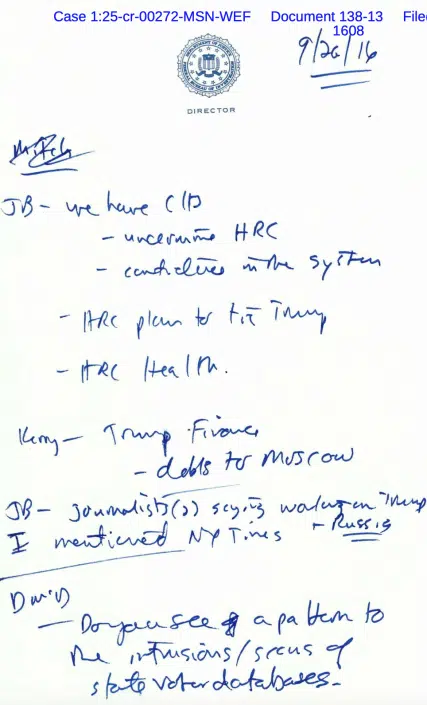 Case 1:25-cr-00272-MSN-WEF Document 138-13 File
1608
9/26/16
DIRECTOR
JB - we have
- undermine HRC
- confidence in the system
- HRC plan to tie Trump
- HRC Health.
Kerry - Trump Finance
- debts to Moscow
JB - journalists(2) saying working on Trump
I mentioned NY Times + Russia
- Do you see a pattern to
the intrusions/scans of
state voter databases.